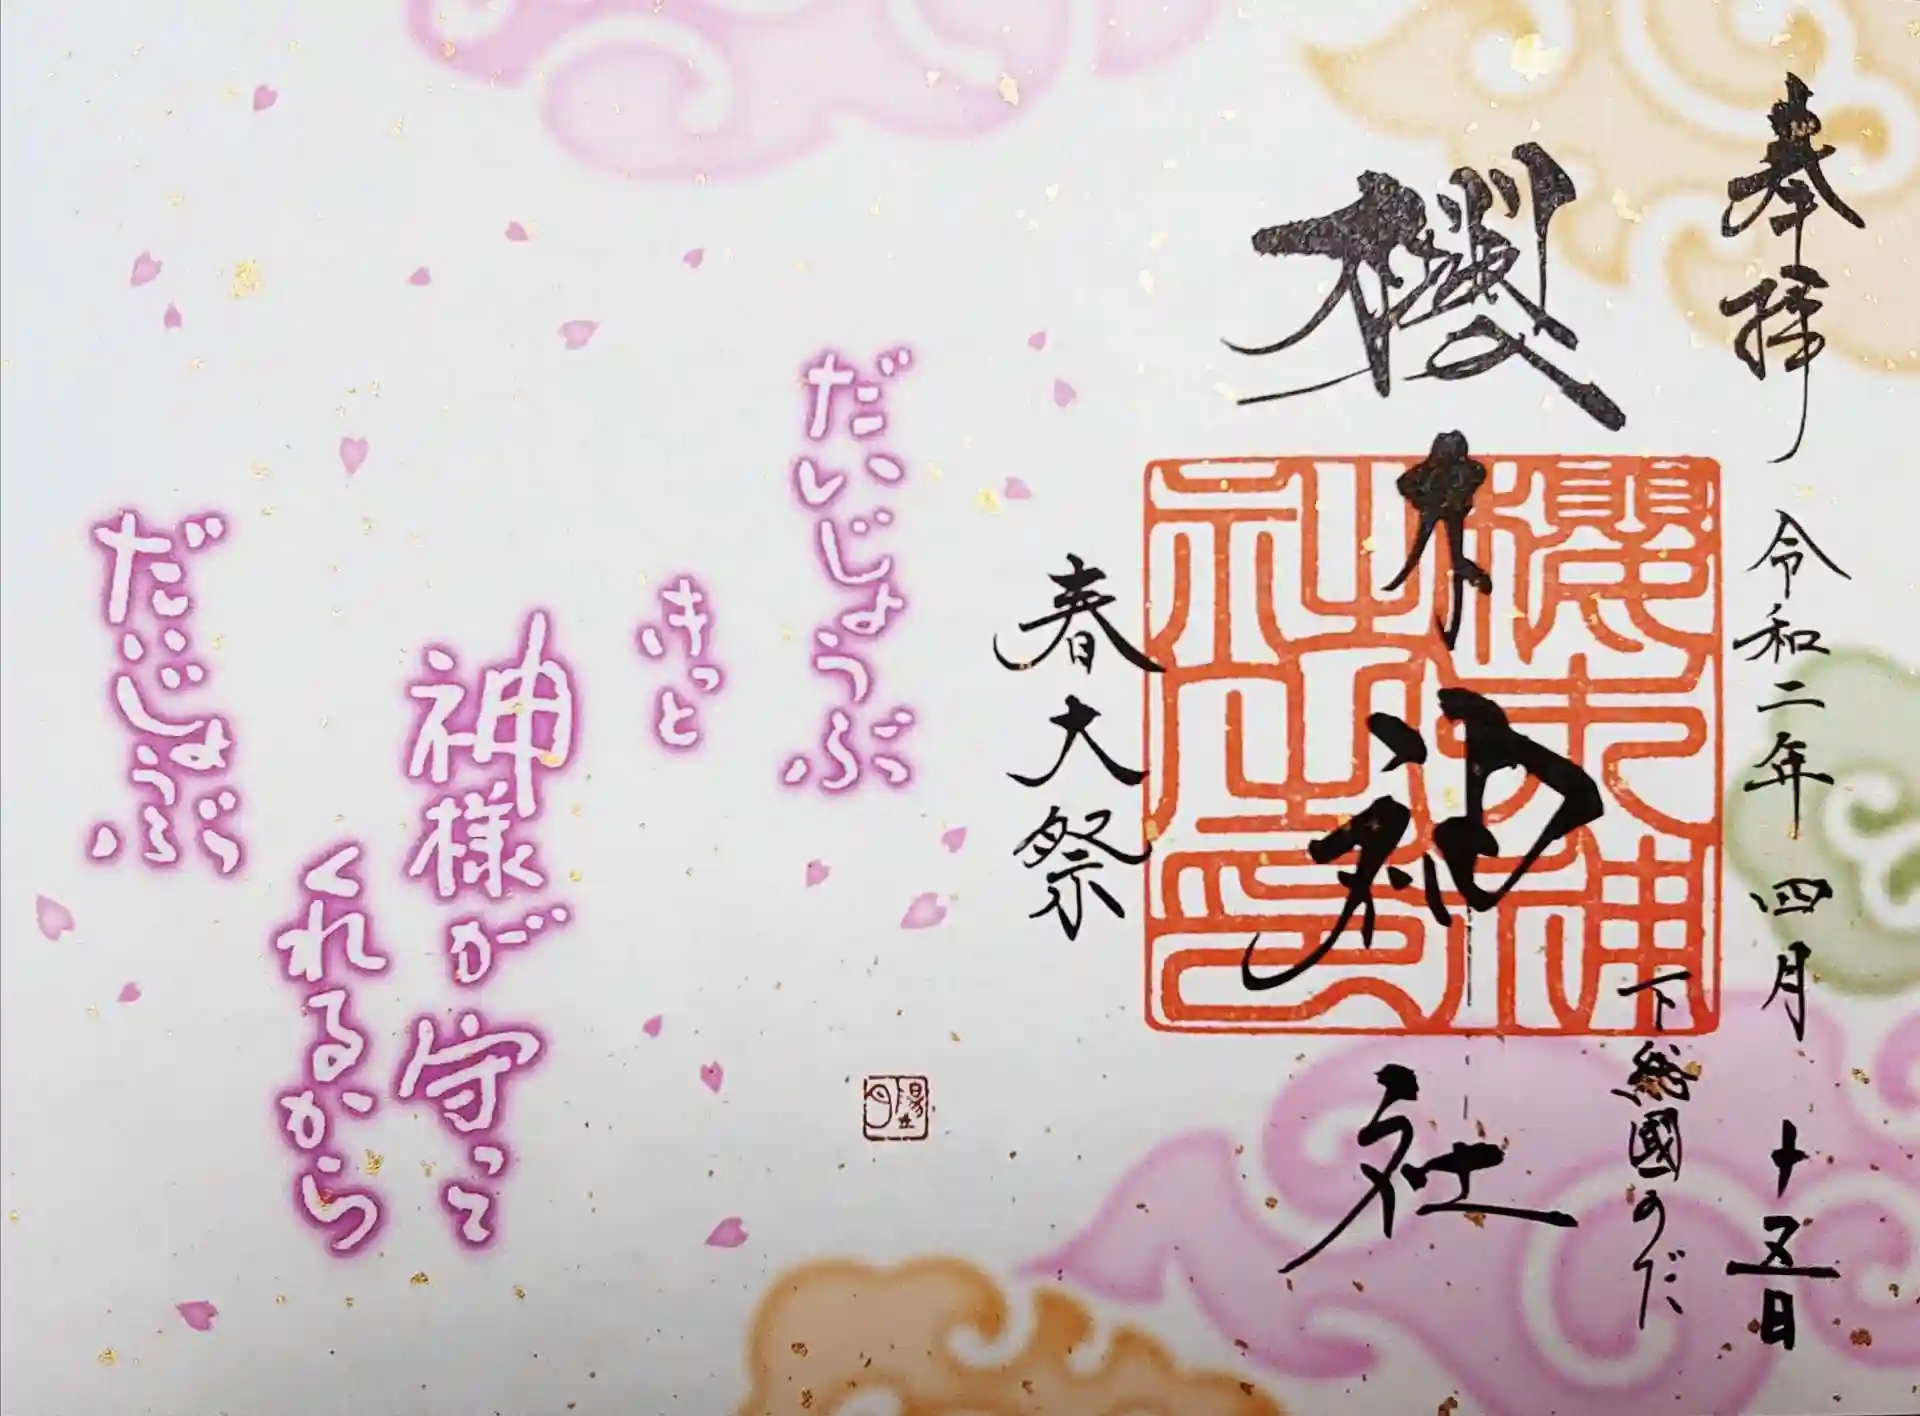 奉拝 令和二年四月十五日
下総國のだ
櫻木神社
櫻木神社之印
春大祭
だいじょうぶ
きっと
神様が守って
くれるから
だいじょうぶ